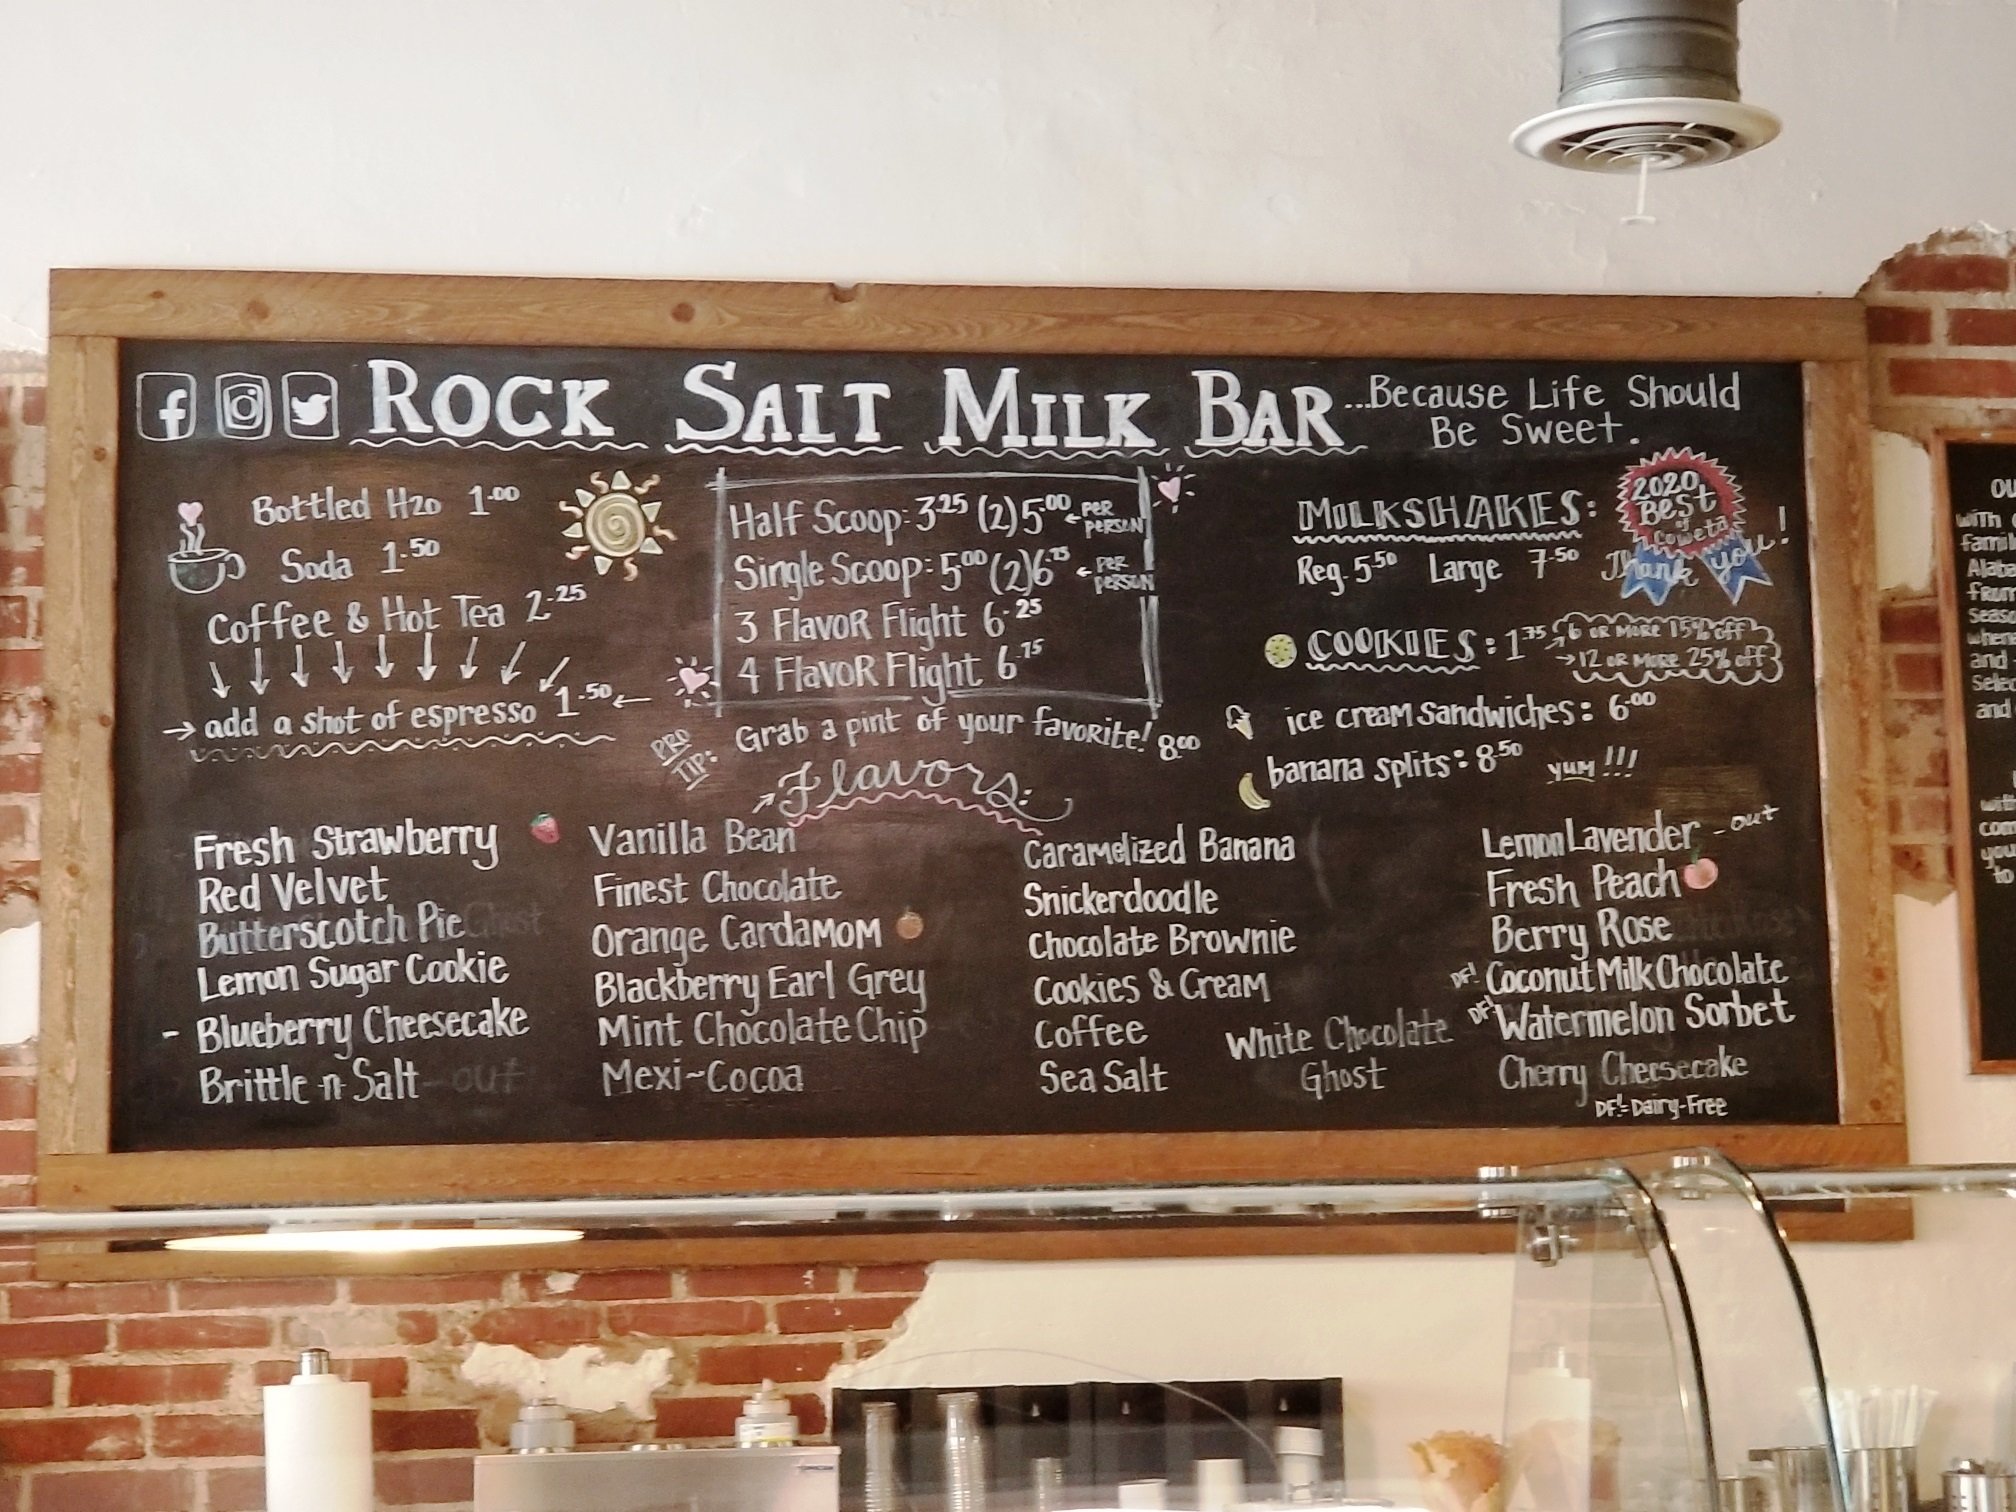 ROCK SALT MILK BAR ...Because Life Should
Be Sweet.
Bottled H2O 1.00
Soda 1.50
Coffee & Hot Tea 2.25
→ add a shot of espresso 1.50 ←
Half Scoop: 3.25 (2) 5.00 ← PER PERSON
Single Scoop: 5.00 (2) 6.75 ← PER PERSON
3 FlavoR Flight 6.25
4 FlavoR Flight 6.75
PRO TIP: Grab a pint of your favorite! 8.00
MILKSHAKES:
Reg. 5.50 Large 7.50
2020
Best
of
Coweta
Thank you!
COOKIES: 1.75 → 6 OR MORE 15% off
→ 12 OR MORE 25% off
ice cream sandwiches: 6.00
banana splits: 8.50 YUM!!!
→ Flavors:
Fresh Strawberry
Red Velvet
Butterscotch Pie
Lemon Sugar Cookie
- Blueberry Cheesecake
Brittle n Salt - out
Vanilla Bean
Finest Chocolate
Orange CardaMOM
Blackberry Earl Grey
Mint Chocolate Chip
Mexi~Cocoa
Caramelized Banana
Snickerdoodle
Chocolate Brownie
Cookies & Cream
Coffee
Sea Salt
White Chocolate
Ghost
Lemon Lavender - out
Fresh Peach
Berry Rose
DF! Coconut Milk Chocolate
DF! Watermelon Sorbet
Cherry Cheesecake
DF! = Dairy-Free
with
and
and
to